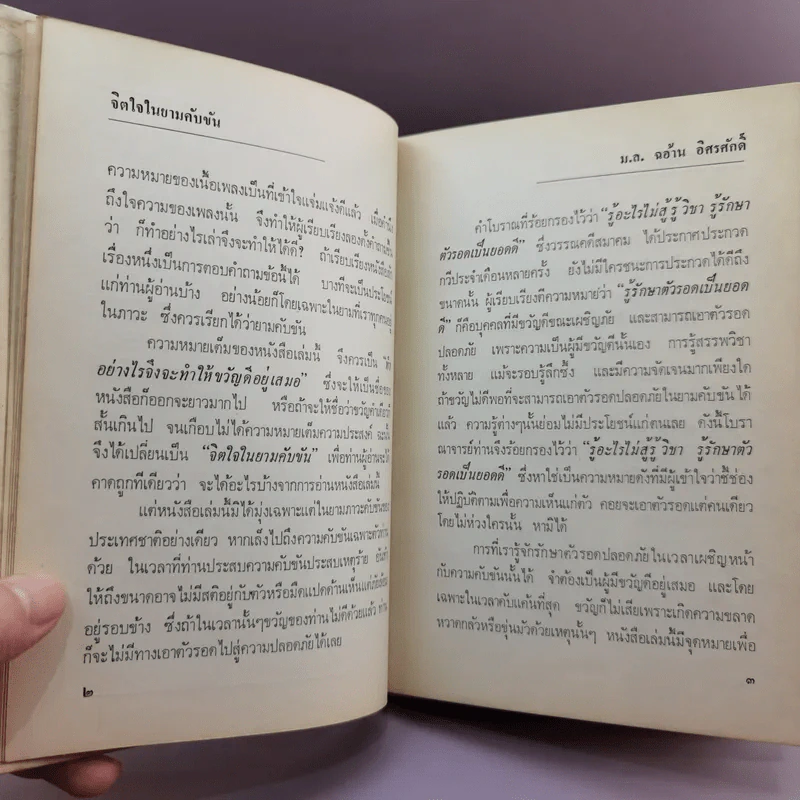 จิตใจในยามคับขัน
ความหมายของเนื้อเพลงเป็นที่เข้าใจแจ่มแจ้งดีแล้ว เมื่อคำนึง
ถึงใจความของเพลงนั้น จึงทำให้ผู้เรียบเรียงลองตั้งคำถามขึ้น
ว่า ก็ทำอย่างไรเล่าจึงจะทำให้ได้ดี? ถ้าเรียบเรียงหนังสือ
เรื่องหนึ่งเป็นการตอบคำถามข้อนี้ได้ บางทีจะเป็นประโยชน์
แก่ท่านผู้อ่านบ้าง อย่างน้อยก็โดยเฉพาะในยามที่เราทุกคน
ในภาวะ ซึ่งควรเรียกได้ว่ายามคับขัน
ความหมายเต็มของหนังสือเล่มนี้ จึงควรเป็น
อย่างไรจึงจะทำให้ขวัญดีอยู่เสมอ” ซึ่งจะให้เป็นชื่อของ
หนังสือก็ออกจะยาวมากไป หรือถ้าจะให้ชื่อว่าขวัญคำเดียวก็
สั้นเกินไป จนเกือบไม่ได้ความหมายเต็มความประสงค์ ฉะนั้น
จึงได้เปลี่ยนเป็น “จิตใจในยามคับขัน” เพื่อท่านผู้อ่านจะได้
คาดถูกทีเดียวว่า จะได้อะไรบ้างจากการอ่านหนังสือเล่มนี้
แต่หนังสือเล่มนี้มิได้มุ่งเฉพาะแต่ในยามภาวะคับขันของ
ประเทศชาติอย่างเดียว หากเล็งไปถึงความคับขันเฉพาะตัวท่าน
ด้วย ในเวลาที่ท่านประสบความคับขันประสบเหตุร้าย
ให้ถึงขนาดอาจไม่มีสติอยู่กับตัวหรือมืดแปดด้านเห็นแต่ภัย
อยู่รอบข้าง ซึ่งถ้าในเวลานั้นๆขวัญของท่านไม่ดีด้วยแล้ว ท่าน
ก็จะไม่มีทางเอาตัวรอดไปสู่ความปลอดภัยได้เลย
๒
ม.ล. ฉอ้าน อิศรศักดิ์
คำโบราณที่ร้อยกรองไว้ว่า “รู้อะไรไม่สู้รู้วิชา รู้รักษา
ตัวรอดเป็นยอดดี” ซึ่งวรรณคดีสมาคม ได้ประกาศประกวด
กวีประจำเดือนหลายครั้ง ยังไม่มีใครชนะการประกวดได้ดีถึง
ขนาดนั้น ผู้เรียบเรียงตีความหมายว่า “รู้รักษาตัวรอดเป็นยอด
ดี” ก็คือบุคคลที่มีขวัญดีขณะเผชิญภัย และสามารถเอาตัวรอด
ปลอดภัย เพราะความเป็นผู้มีขวัญดีนั้นเอง การรู้สรรพวิชา
ทั้งหลาย แม้จะรอบรู้ลึกซึ้ง และมีความจัดเจนมากเพียงใด
ถ้าขวัญไม่ดีพอที่จะสามารถเอาตัวรอดปลอดภัยในยามคับขันได้
แล้ว ความรู้ต่างๆนั้นย่อมไม่มีประโยชน์แก่ตนเลย ดังนี้โบรา
ณาจารย์ท่านจึงร้อยกรองไว้ว่า “รู้อะไรไม่สู้รู้วิชา รู้รักษาตัว
รอดเป็นยอดดี” ซึ่งหาใช่เป็นความหมายดังที่มีผู้เข้าใจว่าชี้ช่อง
ให้ปฏิบัติตามเพื่อความเห็นแก่ตัว คอยจะเอาตัวรอดแต่คนเดียว
โดยไม่ห่วงใครนั้น หามิได้
การที่เรารู้จักรักษาตัวรอดปลอดภัยในเวลาเผชิญหน้า
กับความคับขันนั้นได้ จำต้องเป็นผู้มีขวัญดีอยู่เสมอ และโดย
เฉพาะในเวลาคับแค้นที่สุด ขวัญก็ไม่เสียเพราะเกิดความขลาด
หวาดกลัวหรือขุ่นมัวด้วยเหตุนั้นๆ หนังสือเล่มนี้มีจุดหมายเพื่อ
๓